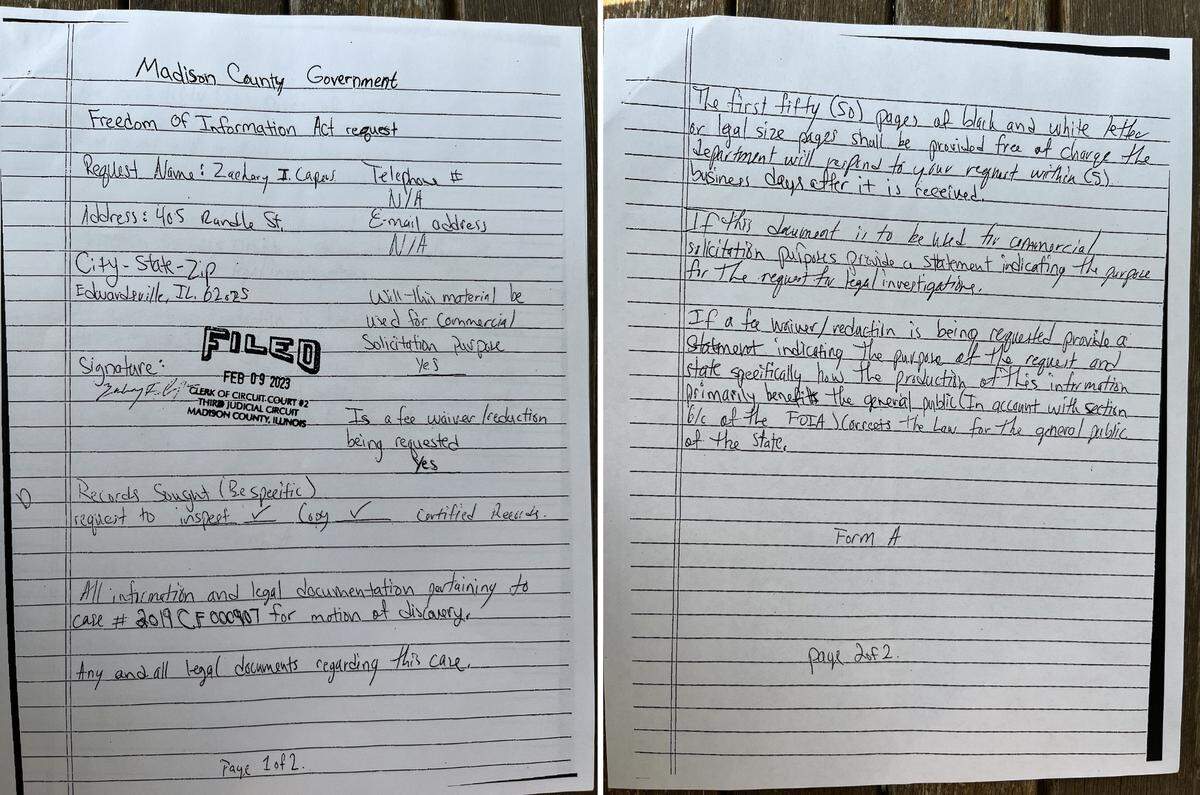 Madison County Government
Freedom of Information Act request
Request Name: Zachary I. Capers Telephone #
N/A
Address: 405 Randle St. E-mail address
N/A
City-State-Zip
Edwardsville, IL. 62025 Will this material be
used for Commercial
Solicitation Purpose
Signature: Yes
FILED
FEB 09 2023
CLERK OF CIRCUIT COURT #2
THIRD JUDICIAL CIRCUIT
MADISON COUNTY, ILLINOIS
Is a fee waiver/reduction
being requested
Yes
Records Sought (Be specific)
request to inspect ✓ Copy ✓ Certified Records.
All information and legal documentation pertaining to
case # 2019CF000907 for motion of discovery.
Any and all legal documents regarding this case.
Page 1 of 2.
The first fifty (50) pages of black and white letter
or legal size pages shall be provided free of charge the
department will respond to your request within (5)
business days after it is received.
If this document is to be used for commercial
solicitation purposes provide a statement indicating the purpose
for the request for legal investigations.
If a fee waiver/reduction is being requested provide a
statement indicating the purpose of the request and
state specifically how the production of this information
primarily benefits the general public (In account with section
6/c of the FOIA) Corrects the Law for the general public
of the State.
Form A
page 2 of 2.